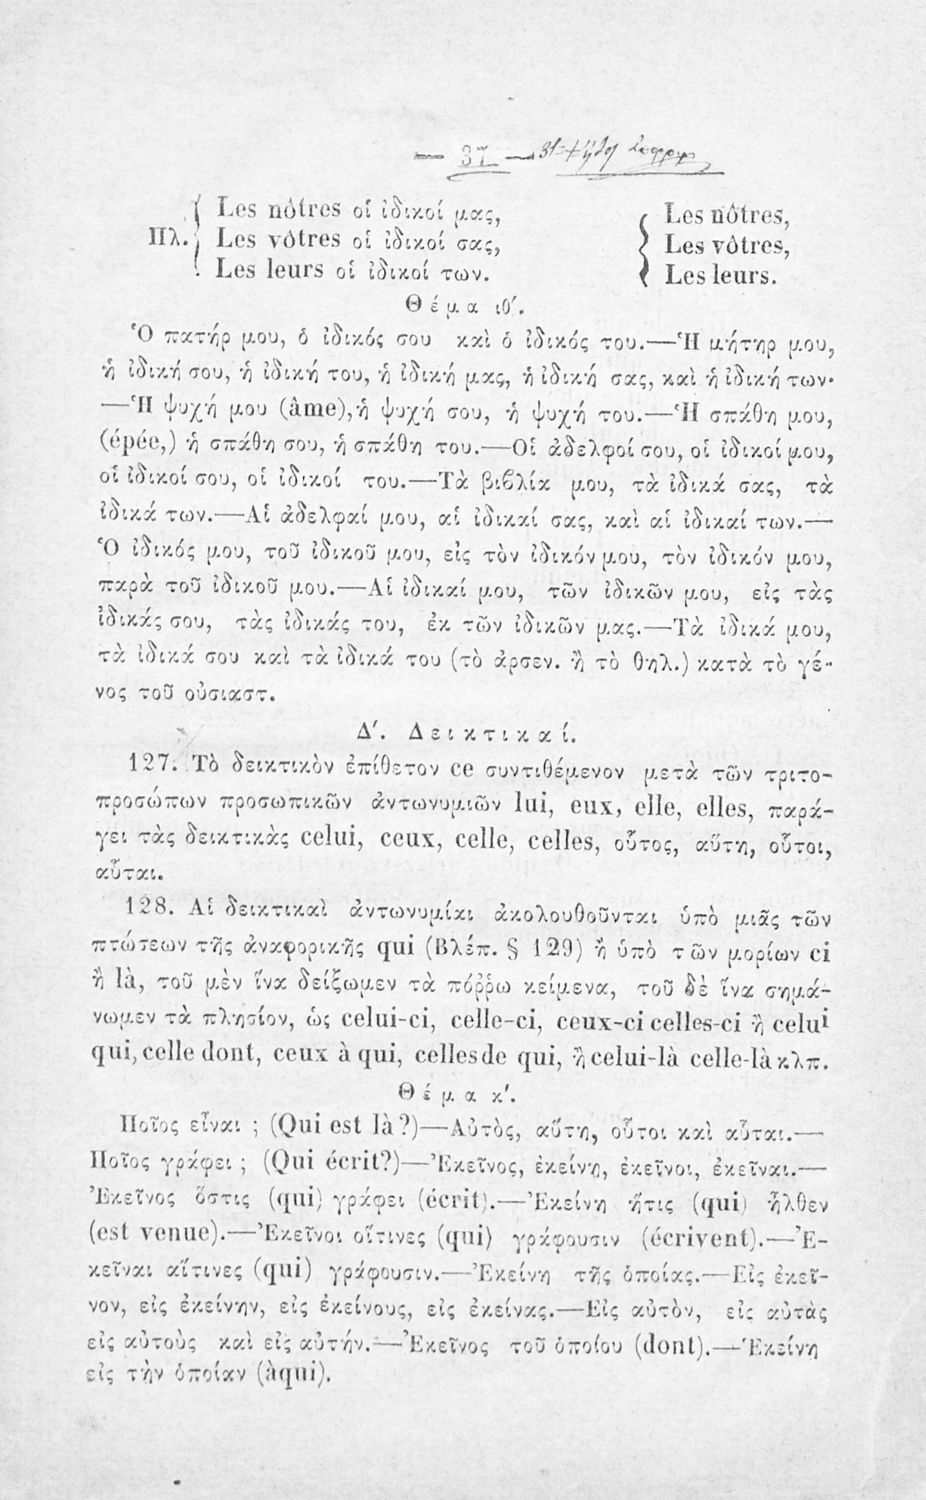 — 37 —
Πλ. { Les nôtres οἱ ἰδικοί μας, { Les nôtres,
Les vôtres οἱ ἰδικοί σας, Les vôtres,
Les leurs οἱ ἰδικοί των. Les leurs.
Θέμα ιθ′.
Ὁ πατήρ μου, ὁ ἰδικός σου καὶ ὁ ἰδικός του.—Ἡ μήτηρ μου,
ἡ ἰδική σου, ἡ ἰδική του, ἡ ἰδική μας, ἡ ἰδική σας, καὶ ἡ ἰδική των·
—Ἡ ψυχή μου (âme), ἡ ψυχή σου, ἡ ψυχή του.—Ἡ σπάθη μου,
(épée,) ἡ σπάθη σου, ἡ σπάθη του.—Οἱ ἀδελφοί σου, οἱ ἰδικοί μου,
οἱ ἰδικοί σου, οἱ ἰδικοί του.—Τὰ βιβλία μου, τὰ ἰδικά σας, τὰ
ἰδικά των.—Αἱ ἀδελφαί μου, αἱ ἰδικαί σας, καὶ αἱ ἰδικαί των.—
Ὁ ἰδικός μου, τοῦ ἰδικοῦ μου, εἰς τὸν ἰδικόν μου, τὸν ἰδικόν μου,
παρὰ τοῦ ἰδικοῦ μου.—Αἱ ἰδικαί μου, τῶν ἰδικῶν μου, εἰς τὰς
ἰδικάς σου, τὰς ἰδικάς του, ἐκ τῶν ἰδικῶν μας.—Τὰ ἰδικά μου,
τὰ ἰδικά σου καὶ τὰ ἰδικά του (τὸ ἀρσεν. ἢ τὸ θηλ.) κατὰ τὸ γέ-
νος τοῦ οὐσιαστ.
Δ′. Δεικτικαί.
127. Τὸ δεικτικὸν ἐπίθετον ce συντιθέμενον μετὰ τῶν τριτο-
προσώπων προσωπικῶν ἀντωνυμιῶν lui, eux, elle, elles, παρά-
γει τὰς δεικτικὰς celui, ceux, celle, celles, οὗτος, αὕτη, οὗτοι,
αὗται.
128. Αἱ δεικτικαὶ ἀντωνυμίαι ἀκολουθοῦνται ὑπὸ μιᾶς τῶν
πτώσεων τῆς ἀναφορικῆς qui (Βλέπ. § 129) ἢ ὑπὸ τῶν μορίων ci
ἢ là, τοῦ μὲν ἵνα δείξωμεν τὰ πόῤῥω κείμενα, τοῦ δὲ ἵνα σημά-
νωμεν τὰ πλησίον, ὡς celui-ci, celle-ci, ceux-ci celles-ci ἢ celui
qui, celle dont, ceux à qui, celles de qui, ἢ celui-là celle-là κλπ.
Θέμα κ′.
Ποῖος εἶναι ; (Qui est là?)—Αὐτὸς, αὕτη, οὗτοι καὶ αὗται.—
Ποῖος γράφει ; (Qui écrit?)—Ἐκεῖνος, ἐκείνη, ἐκεῖνοι, ἐκεῖναι.—
Ἐκεῖνος ὅστις (qui) γράφει (écrit).—Ἐκείνη ἥτις (qui) ἦλθεν
(est venue).—Ἐκεῖνοι οἵτινες (qui) γράφουσιν (écrivent).—Ἐ-
κεῖναι αἵτινες (qui) γράφουσιν.—Ἐκείνη τῆς ὁποίας.—Εἰς ἐκεῖ-
νον, εἰς ἐκείνην, εἰς ἐκείνους, εἰς ἐκείνας.—Εἰς αὐτὸν, εἰς αὐτὰς
εἰς αὐτοὺς καὶ εἰς αὐτήν.—Ἐκεῖνος τοῦ ὁποίου (dont).—Ἐκείνη
εἰς τὴν ὁποίαν (à qui).